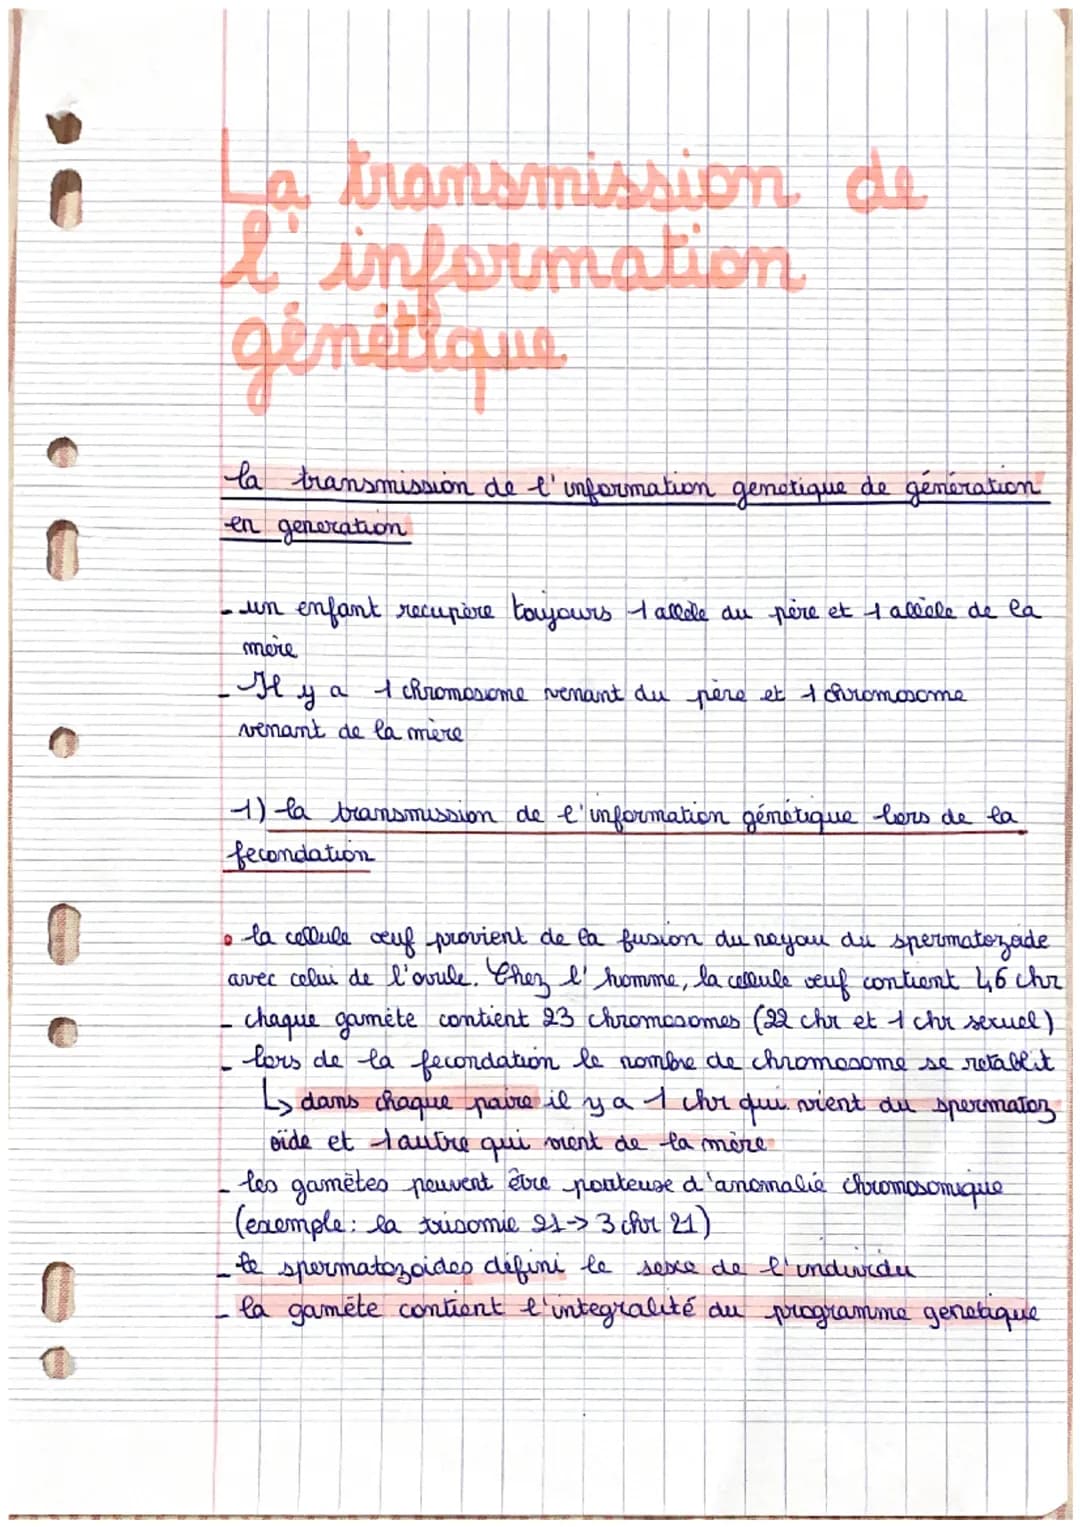 La transmission de
l'information
génétique
la transmission de l'information genetique de génération
en generation
- un enfant recupère toujours 1 allèle du père et 1 allèle de la
mère
- Il y a 1 chromosome venant du père et 1 chromosome
venant de la mère
1) la transmission de l'information génétique lors de la
fecondation
• la cellule oeuf provient de la fusion du noyau du spermatozoide
avec celui de l'ovule. Chez l'homme, la cellule oeuf contient 46 chr
- chaque gamète contient 23 chromosomes (22 chr et 1 chr sexuel)
- lors de la fecondation le nombre de chromosome se retablit
↳ dans chaque paire il y a 1 chr qui vient du spermatoz
oïde et l'autre qui vient de la mère
- les gamètes peuvent être porteuse d'anomalie chromosomique
(exemple: la trisomie 21 -> 3 chr 21)
- le spermatozoides défini le sexe de l'individu
- la gamète contient l'integralité du programme genetique